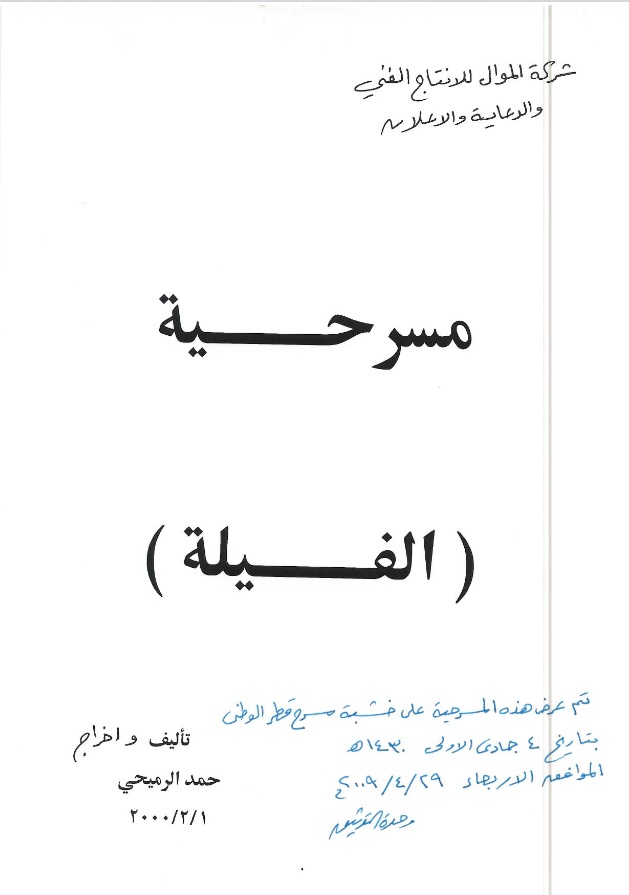 شركة الموال للانتاج الفني
والدعاية والاعلان
مسرحية
( الفيلة )
تم عرض هذه المسرحية على خشبة مسرح قطر الوطني
بتاريخ ٤ جمادى الاولى ١٤٣٠هـ
الموافق الاربعاء ٢٩/٤/٢٠٠٩م
وحدة التوثيق
تأليف و اخراج
حمد الرميحي
٢٠٠٠/٢/١